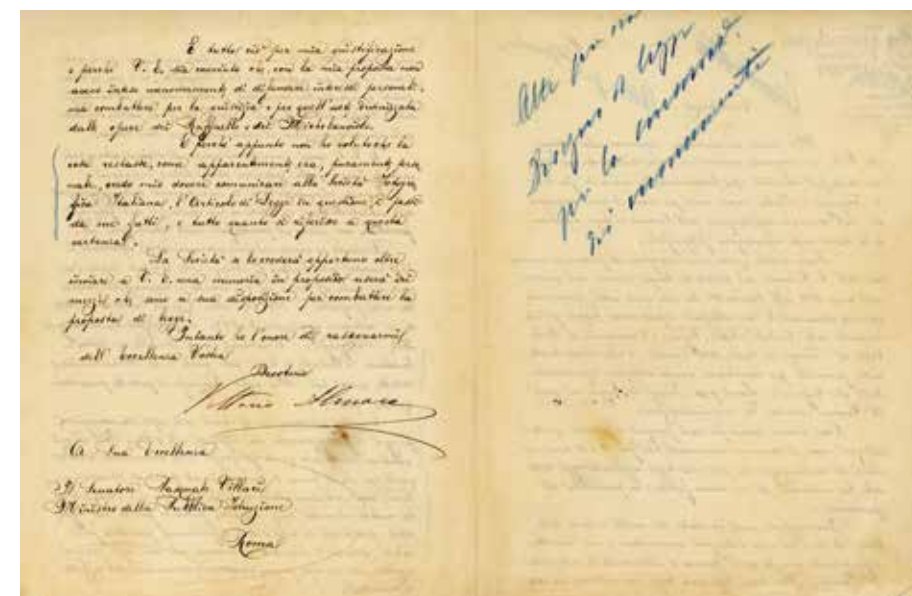 È tutto ciò per mia giustificazione
e perchè V. E. sia convinto che, con la mia proposta non
avevo inteso menomamente di difendere interessi personali,
ma combattere per la giustizia e per quell'arte
dalle opere dei Raffaello e dei Michelangelo.
E perchè appunto non ho voluto che la
cosa restasse, come apparentemente era, puramente perso
nale, credo mio dovere comunicare alla Società Fotogra
fica Italiana, l'Articolo di Legge in questione, i passi
da me fatti, e tutto quanto si riferisce a questa
vertenza.
La Società se lo crederà opportuno oltre
inviare a V. E. una memoria in proposito userà dei
mezzi che sono a sua disposizione per combattere la
proposta di legge.
Intanto ho l'onore di rassegnarmi
dell'Eccellenza Vostra
Devotmo
Vittorio Alinari
A Sua Eccellenza
Il Senatore Pasquale Villari
Ministro della Pubblica Istruzione
Roma
legge
per la
dei monumenti